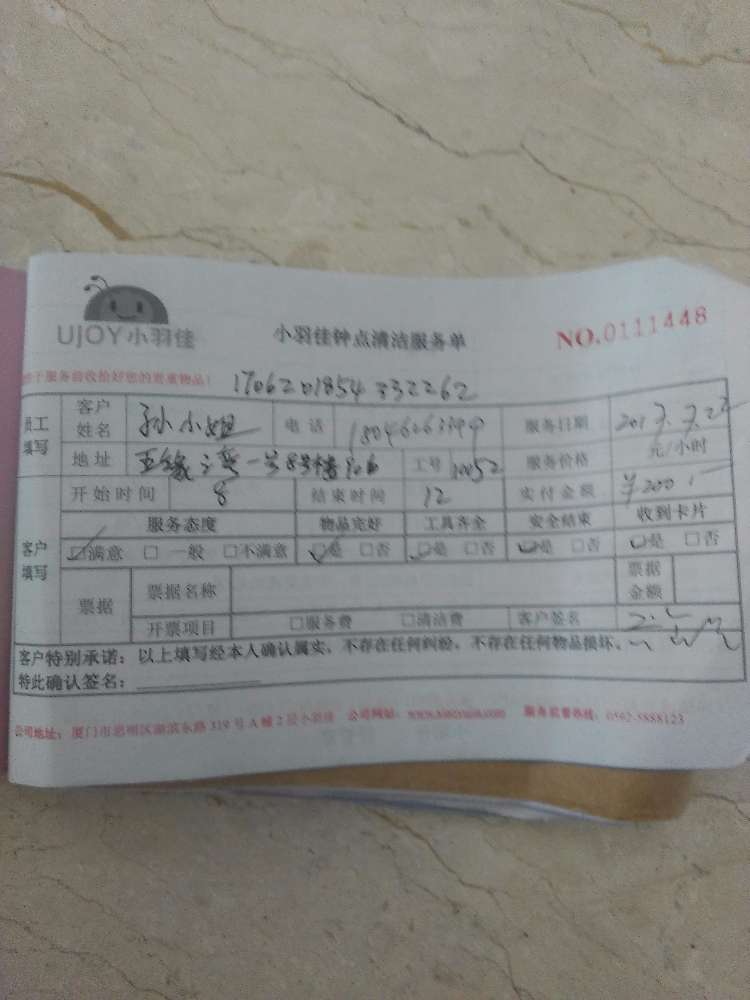 UJOY小羽佳
小羽佳钟点清洁服务单
NO.0111448
于服务前收拾好您的贵重物品!
1706201854332262
员工填写 客户姓名 孙小姐 电话 服务日期 2017.7.22
地址 五缘 一号8号楼 工号 10052 服务价格 元/小时
开始时间 8 结束时间 12 实付金额 ¥200
客户填写 服务态度 物品完好 工具齐全 安全结束 收到卡片
☑满意 □一般 □不满意 ☑是 □否 ☑是 □否 ☑是 □否 ☑是 □否
票据 票据名称 票据金额
开票项目 □服务费 □清洁费 客户签名
客户特别承诺:以上填写经本人确认属实,不存在任何纠纷,不存在任何物品损坏。
特此确认签名:
公司地址:厦门市思明区湖滨东路319号A幢2层小羽佳 公司网站: 服务监督热线:0592-5888123